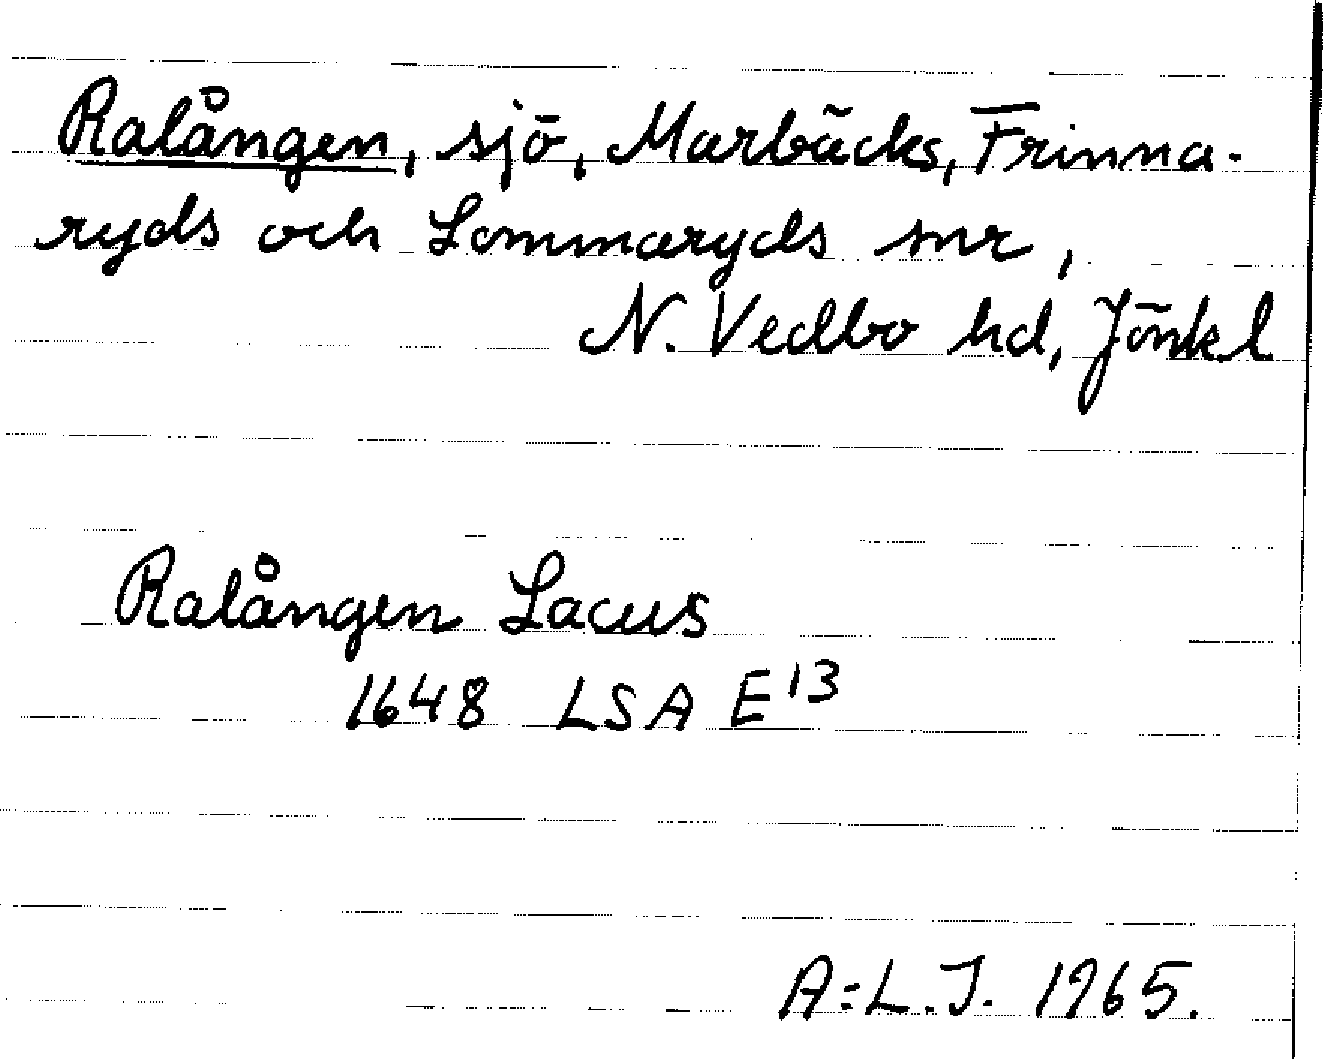 Ralången, sjö, Marbäcks, Frinna-
ryds och Lommaryds snr,
N. Vedbo hd, Jönk l
Ralången Lacus
1648 LSA E 13
A:L.J. 1965.